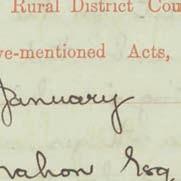 Rural District Cou
ve-mentioned Acts,
January
mahon Esq